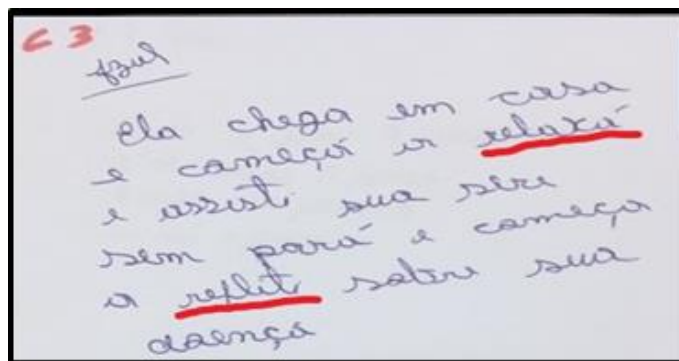 C3
Azul
Ela chega em casa
e começa a relaxá
e assisti sua séri
sem pará e começa
a refleti sobre sua
doença